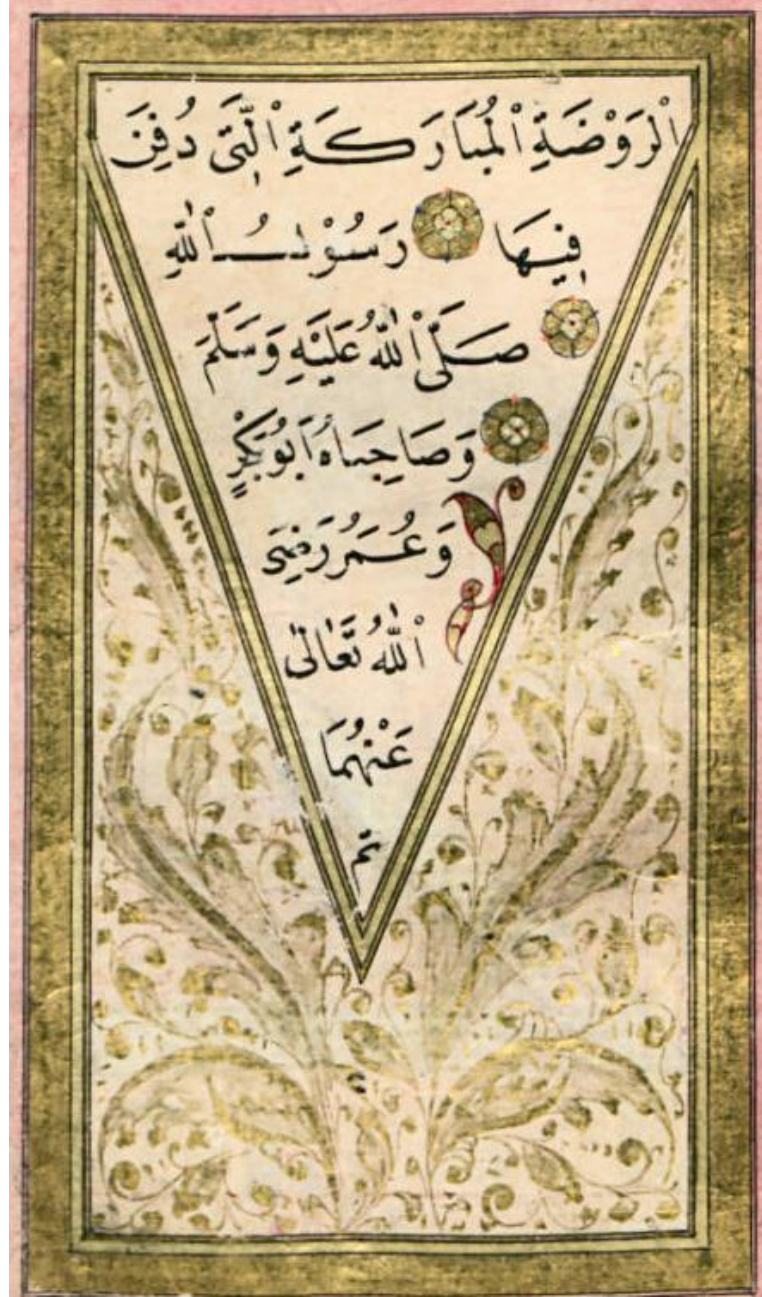 اَلرَّوْضَةِ اْلمُبَارَكَةِ الَّتِى دُفِنَ
فِيهَا رَسُوْلُ اللهِ
صَلَّى اللهُ عَلَيْهِ وَسَلَّمَ
وَصَاحِبَاهُ اَبُوبَكْرٍ
وَعُمَرُ رَضِىَ
اللهُ تَعَالٰى
عَنْهُمَا
تم